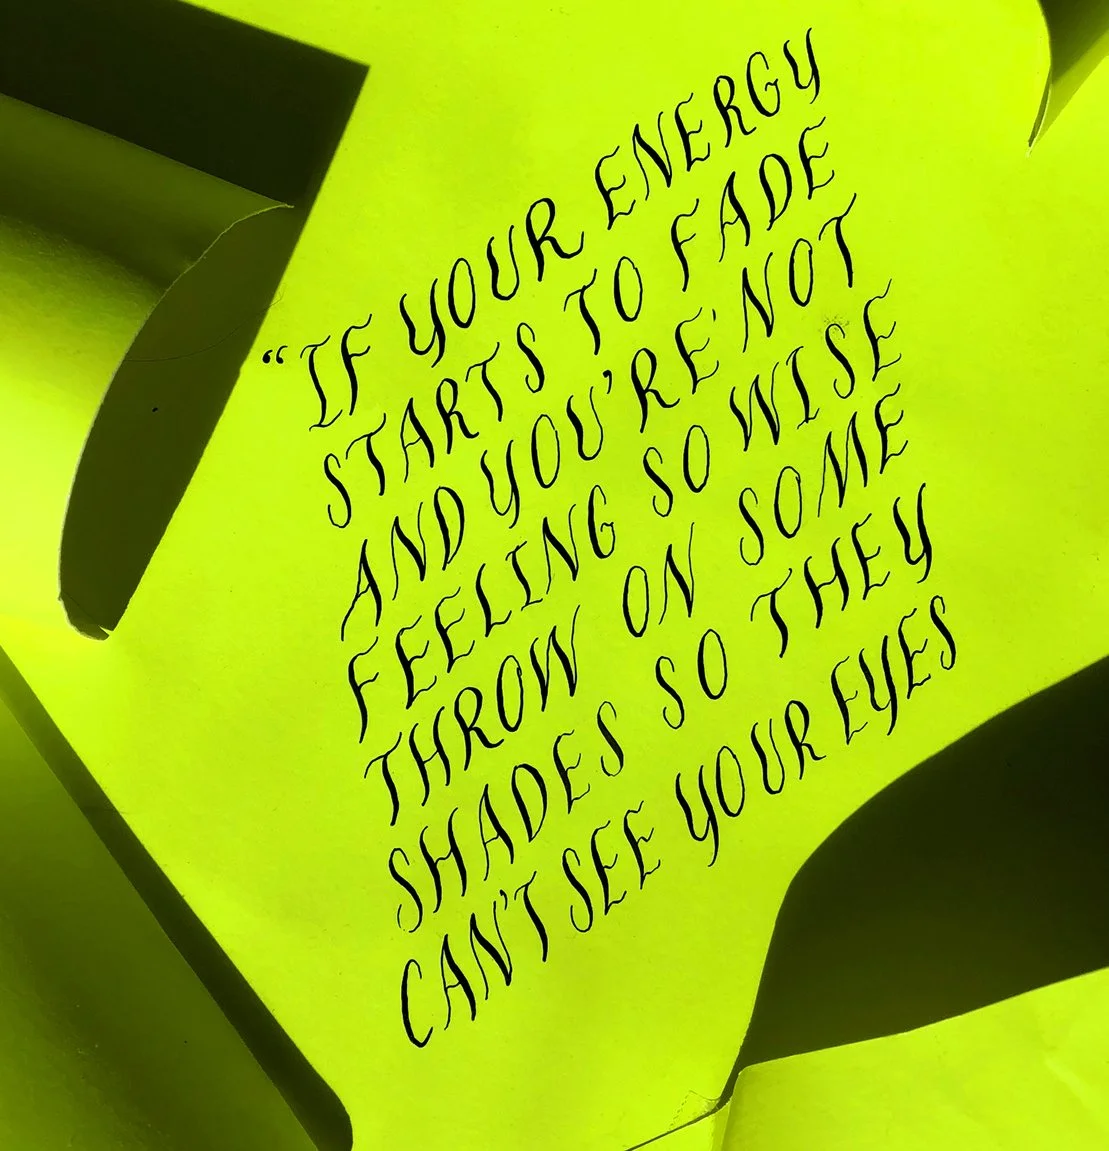 “IF YOUR ENERGY
STARTS TO FADE
AND YOU'RE NOT
FEELING SO WISE
THROW ON SOME
SHADES SO THEY
CAN'T SEE YOUR EYES